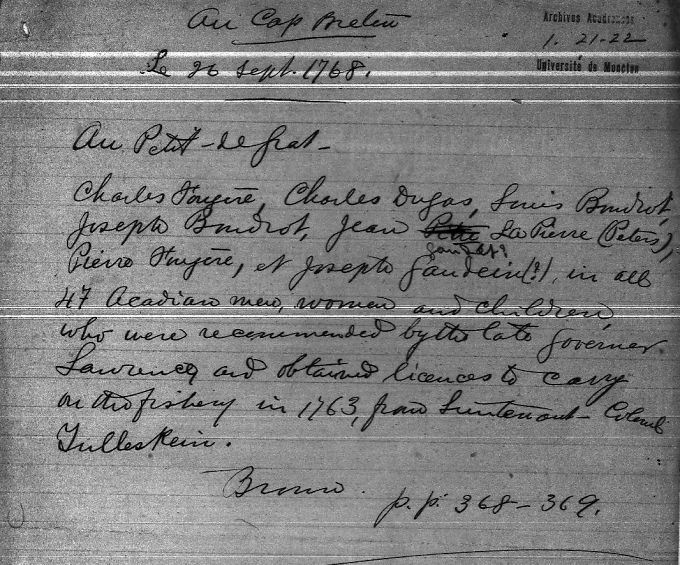 Au Cap Breton
Archives Acadiennes
1. 21-22
Université de Moncton
Le 26 sept. 1768.
Au Petit-de grat-
Charles Fougère, Charles Dugas, Louis Boudrot,
Joseph Boudrot, Jean La Pierre (Peters),
Gaudet?
Pierre Fougère, et Joseph Gaudein(?), in all
47 Acadian men, women and children
who were recommended by the late governer
Lawrence, and obtained licences to carry
on the fishery in 1763, from Lieutenant-Colonel
Tulleskein.
Brown. p.p. 368-369.